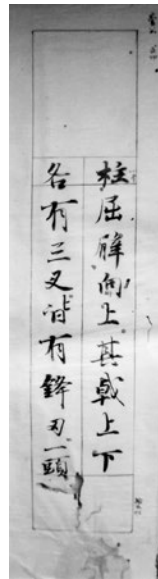 柱屈解向上其戟上下
各有三叉皆有鋒刃一頭